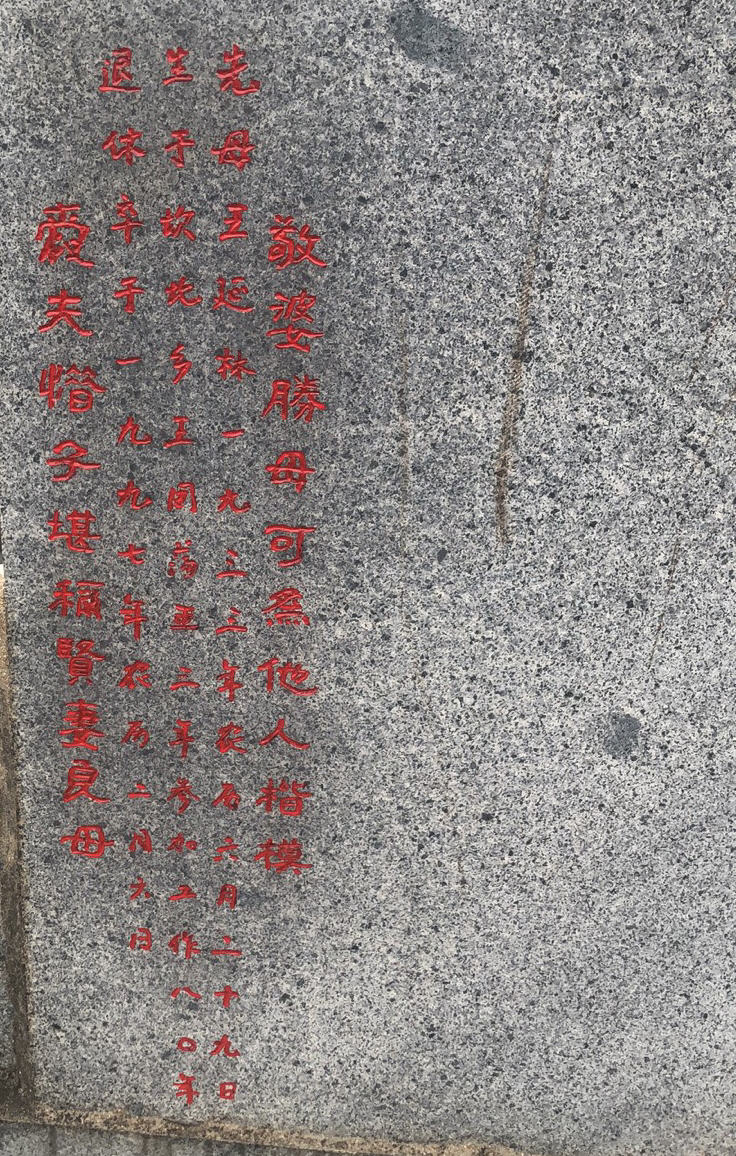 敬婆勝母可為他人楷模
先母王延林一九三三年农历六月二十九日
生于坎北乡王荡五三年参加工作八〇年
退休卒于一九九七年农历二月六日
愛夫惜子堪稱賢妻良母